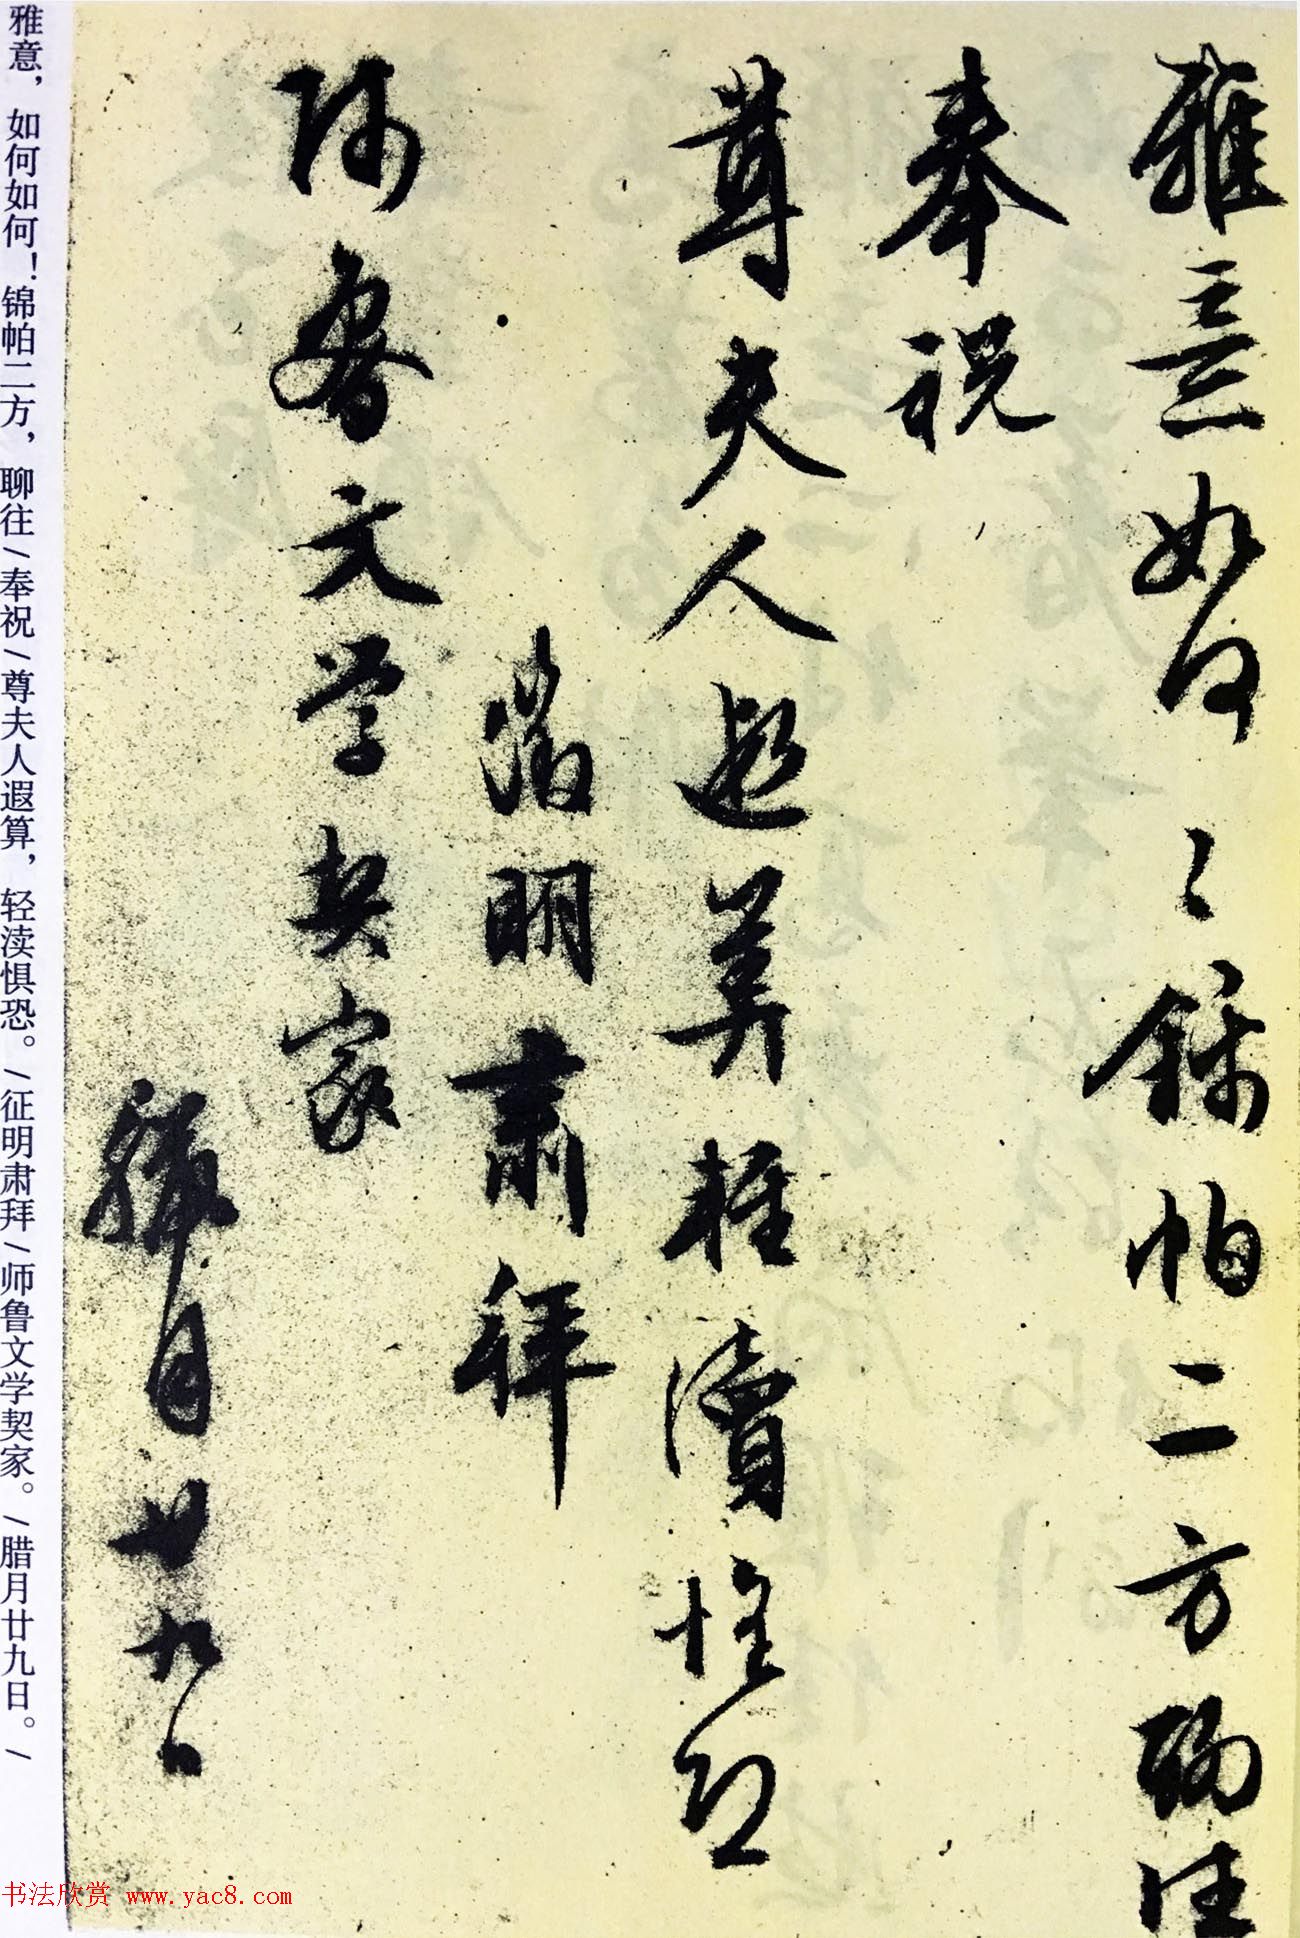 雅意如何〻錦帕二方聊往
奉祝
尊夫人遐算輕瀆惶恐
徵明肅拜
師魯文學契家
臘月廿九日
雅意，如何如何！锦帕二方，聊往/奉祝/尊夫人遐算，轻渎惧恐。/征明肃拜/师鲁文学契家。/腊月廿九日。/
书法欣赏 www.yac8.com